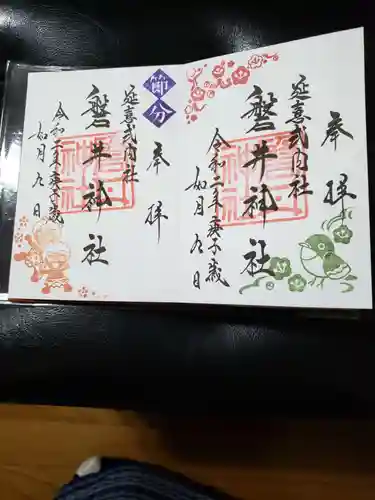 奉拝
延喜式内社
磐井神社
令和二年庚子歳
如月九日
節分
奉拝
延喜式内社
磐井神社
令和二年庚子歳
如月九日